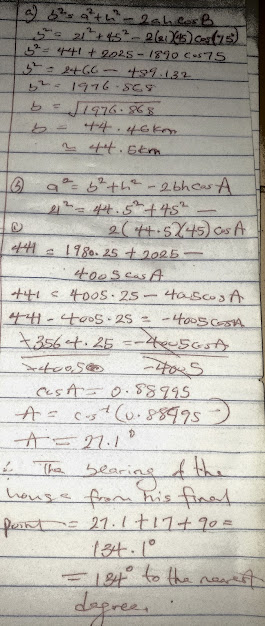 a) b² = a² + h² - 2ah cos B
b² = 21² + 45² - 2(21)(45) cos(75)
b² = 441 + 2025 - 1890 cos 75
b² = 2466 - 489.132
b² = 1976.868
b = √1976.868
b = 44.46km
≈ 44.5km
b) a² = b² + h² - 2bh cos A
21² = 44.5² + 45² -
2(44.5)(45) cos A
441 = 1980.25 + 2025 -
4005 cos A
441 = 4005.25 - 4005 cos A
441 - 4005.25 = -4005 cos A
-3564.25 = -4005 cos A
-4005 -4005
cos A = 0.88995
A = cos⁻¹(0.88995)
A = 27.1°
∴ The bearing of the
house from his final
point = 27.1 + 17 + 90 =
134.1°
= 134° to the nearest
degree.